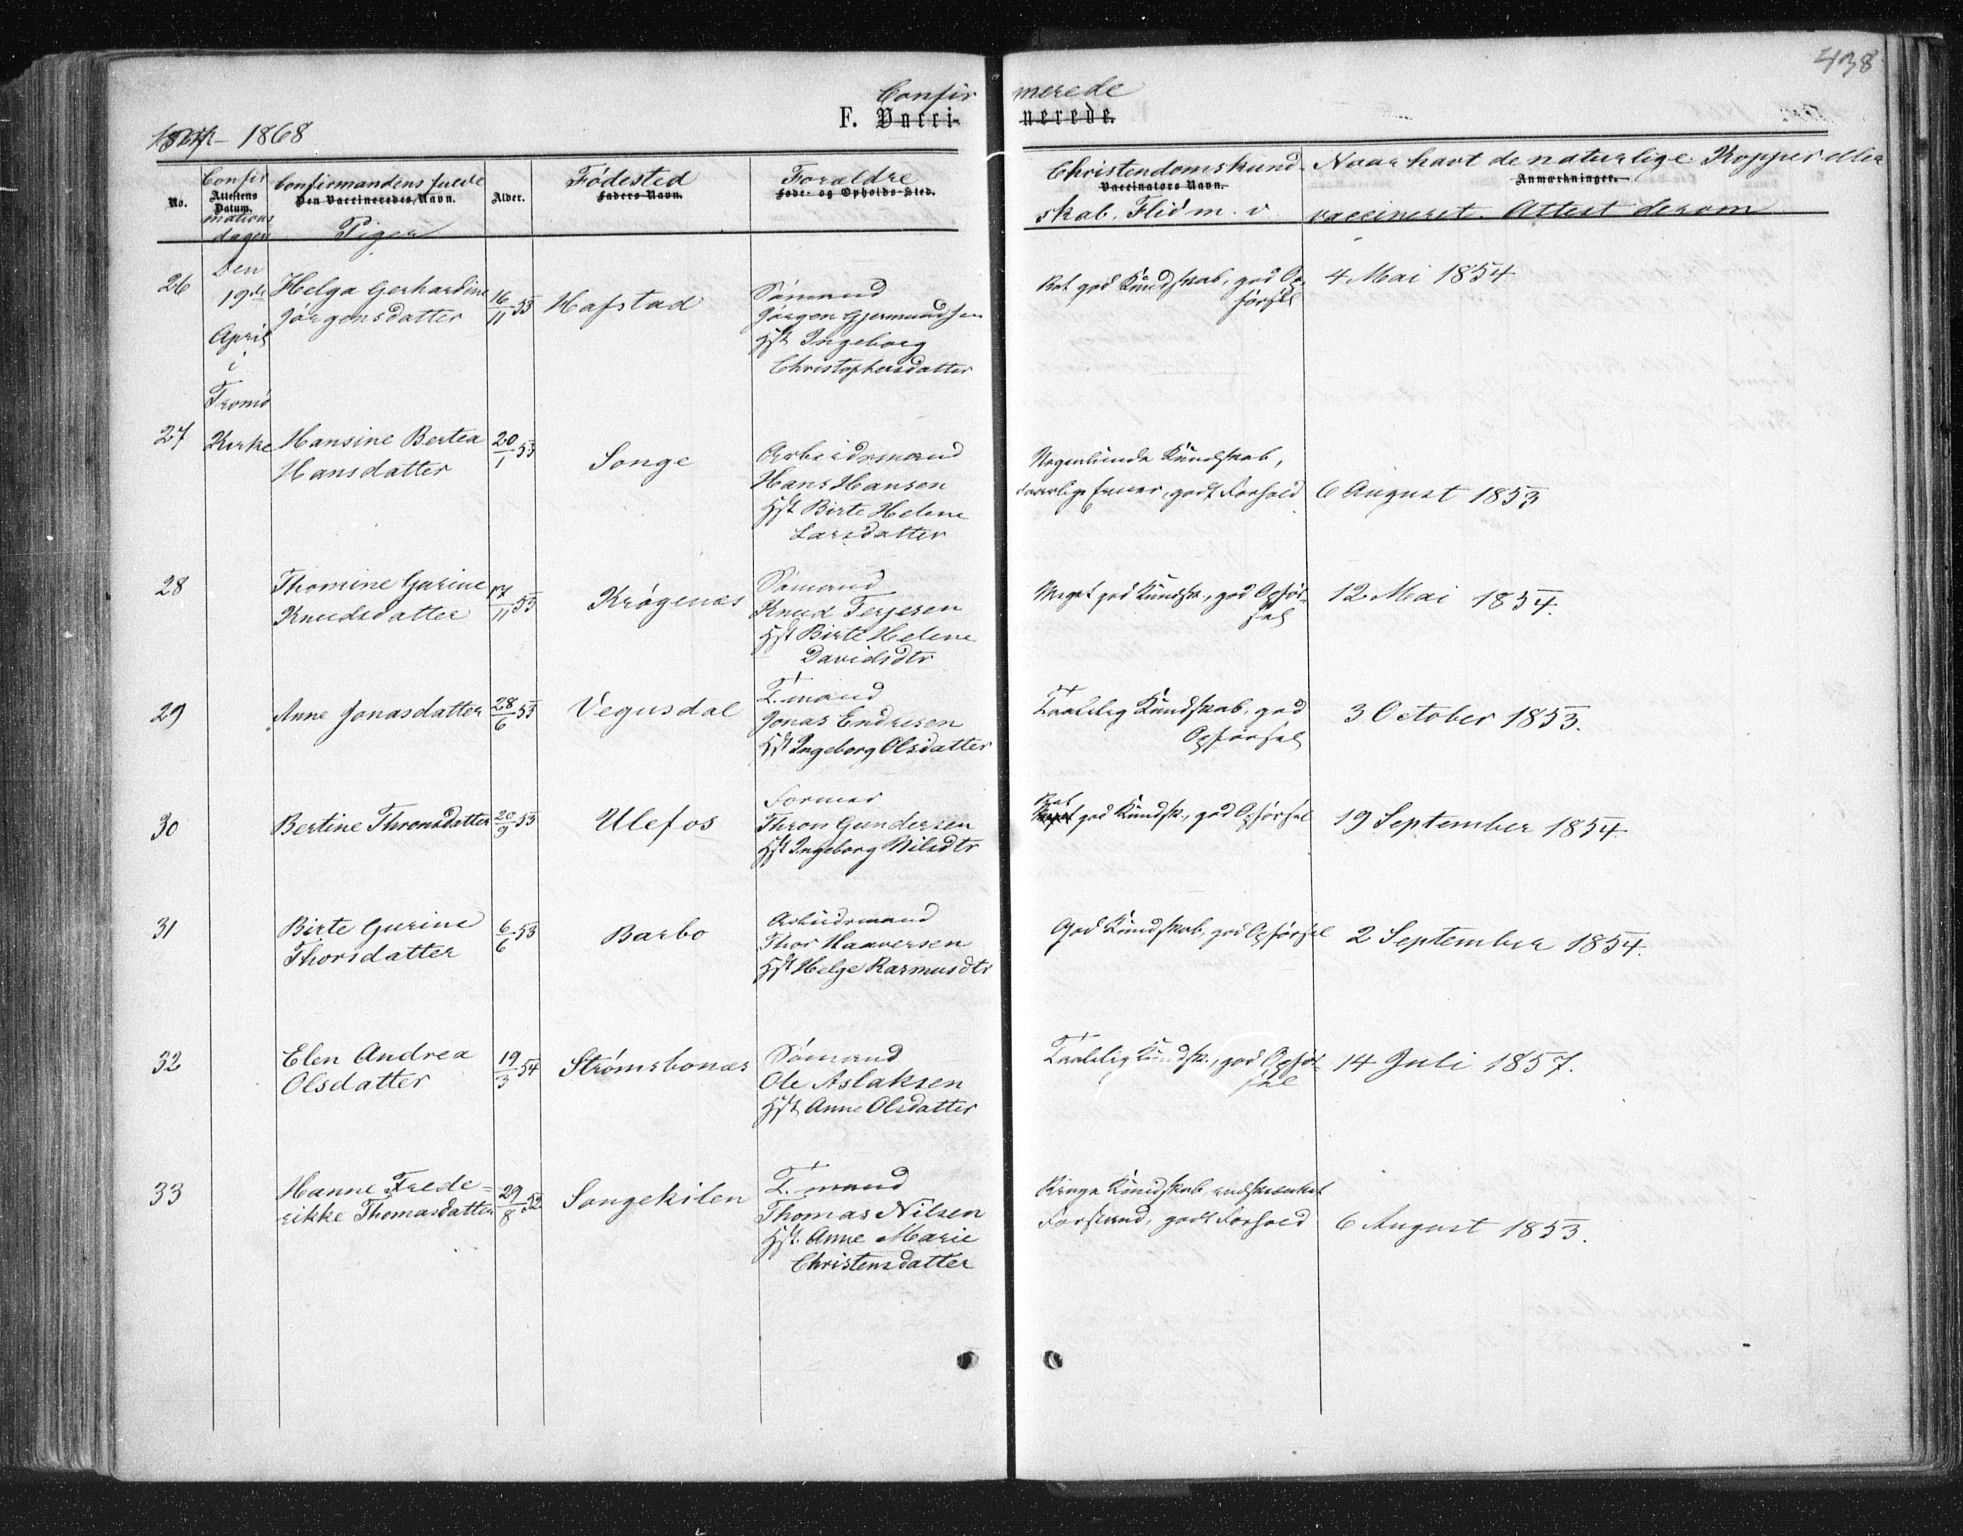 438
Confirmerede
F. Vaccinerede.
1868
No.
Confirmationsdagen
Attestens Datum.
Confirmandens fulde
Den Vaccineredes Navn.
Piger
Alder.
Fødested
Faders Navn.
Forældre
Føde- og Opholds-Sted.
Christendomskund-
Vaccinators Navn.
skab. Flid m. v
Naar havt de naturlige Kopper eller
Anmærkninger.
vaccineret. Attest derom
26
Den
19de
April
i
Tromø
Kirke
Helga Gerhardine
Jørgensdatter
16/11 53
Hafstad
Sømand
Jørgen Gjermundsen
Hst Ingeborg
Christophersdatter
Ret god Kundskab, god Op-
førsel
4 Mai 1854
27
Hansine Bertea
Hansdatter
20/1 53
Songe
Arbeidsmand
Hans Hansen
Hst Birte Helene
Larsdatter
Nogenlunde Kundskab,
daarlige Evner, godt Forhold
6 August 1853
28
Thomine Gurine
Knudsdatter
17/11 53
Krøgenæs
Sømand
Knud Terjesen
Hst Birte Helene
Davidsdtr
Meget god Kundsk., god Opfør-
sel
12 Mai 1854.
29
Anne Jonasdatter
28/6 53
Vegusdal
T. mand
Jonas Endresen
Hst Ingeborg Olsdatter
Taalelig Kundskab, god
Opførsel
3 October 1853.
30
Bertine Thronsdatter
20/9 53
Ulefos
Former
Thron Gundersen
Hst Ingeborg Nilsdtr
Ret
Meget god Kundsk., god Opførsel
19 September 1854
31
Birte Gurine
Thorsdatter
6/6 53
Barbo
Arbeidsmand
Thor Haaversen
Hst Helge Rasmusdtr
God Kundskab, god Opførsel
2 September 1854.
32
Elen Andrea
Olsdatter
19/3 54
Strømsbonæs
Sømand
Ole Aslaksen
Hst Anne Olsdatter
Taalelig Kundsk., god Opfør-
sel
14 Juli 1857.
33
Hanne Frede-
rikke Thomasdatter
29/8 52
Songekilen
T. mand
Thomas Nilsen
Hst. Anne Marie
Christensdatter
Ringe Kundskab, indskrænket
Forstand, godt Forhold
6 August 1853.